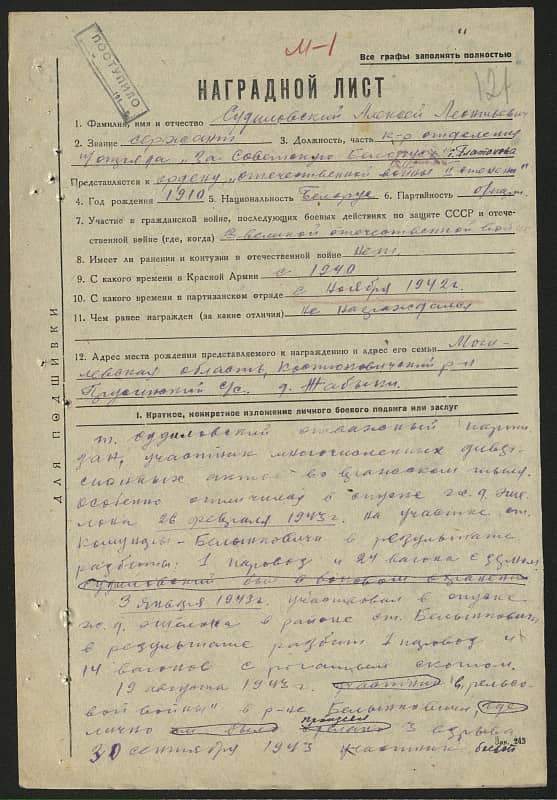 М-1
Все графы заполнять полностью
ПОСТУПИЛО
121
НАГРАДНОЙ ЛИСТ
1. Фамилия, имя и отчество Судиловский Алексей Леонтьевич
2. Звание сержант 3. Должность, часть к-р отделения
отряда „За Советскую Белоруссию"
Представляется к ордену „отечественной войны II степени"
4. Год рождения 1910 5. Национальность Белорус 6. Партийность
7. Участие в гражданской войне, последующих боевых действиях по защите СССР и отече-
ственной войне (где, когда) В великой отечественной войне
8. Имеет ли ранения и контузии в отечественной войне Нет
9. С какого времени в Красной Армии с 1940
10. С какого времени в партизанском отряде с Ноября 1942г.
11. Чем ранее награжден (за какие отличия) Не Награждался
12. Адрес места рождения представляемого к награждению и адрес его семьи Моги-
левская область, Костюковичский р-н
Прусинский с/с. д. Жабыки.
ДЛЯ ПОДШИВКИ
I. Краткое, конкретное изложение личного боевого подвига или заслуг
т. Судиловский отважный парти-
зан, участник многочисленных дивер-
сионных актов во вражеском тылу.
Особенно отличился в спуске ж.д. эше-
лона 26 февраля 1943г. на участке ст.
Коммунары - Белынковичи в результате
разбиты: 1 паровоз и 24 вагона с
Судиловский был в боевом охранении
3 января 1943г. участвовал в спуске
ж.д. эшелона в районе ст. Белынковичи
в результате разбит 1 паровоз и
14 вагонов с рогатым скотом.
19 августа 1943г. участник в „рельсо-
вой войны" в р-не Белынковичи, где
лично им было сделано произвел 3 взрыва
30 сентября 1943 участник боевой
Зак. 243